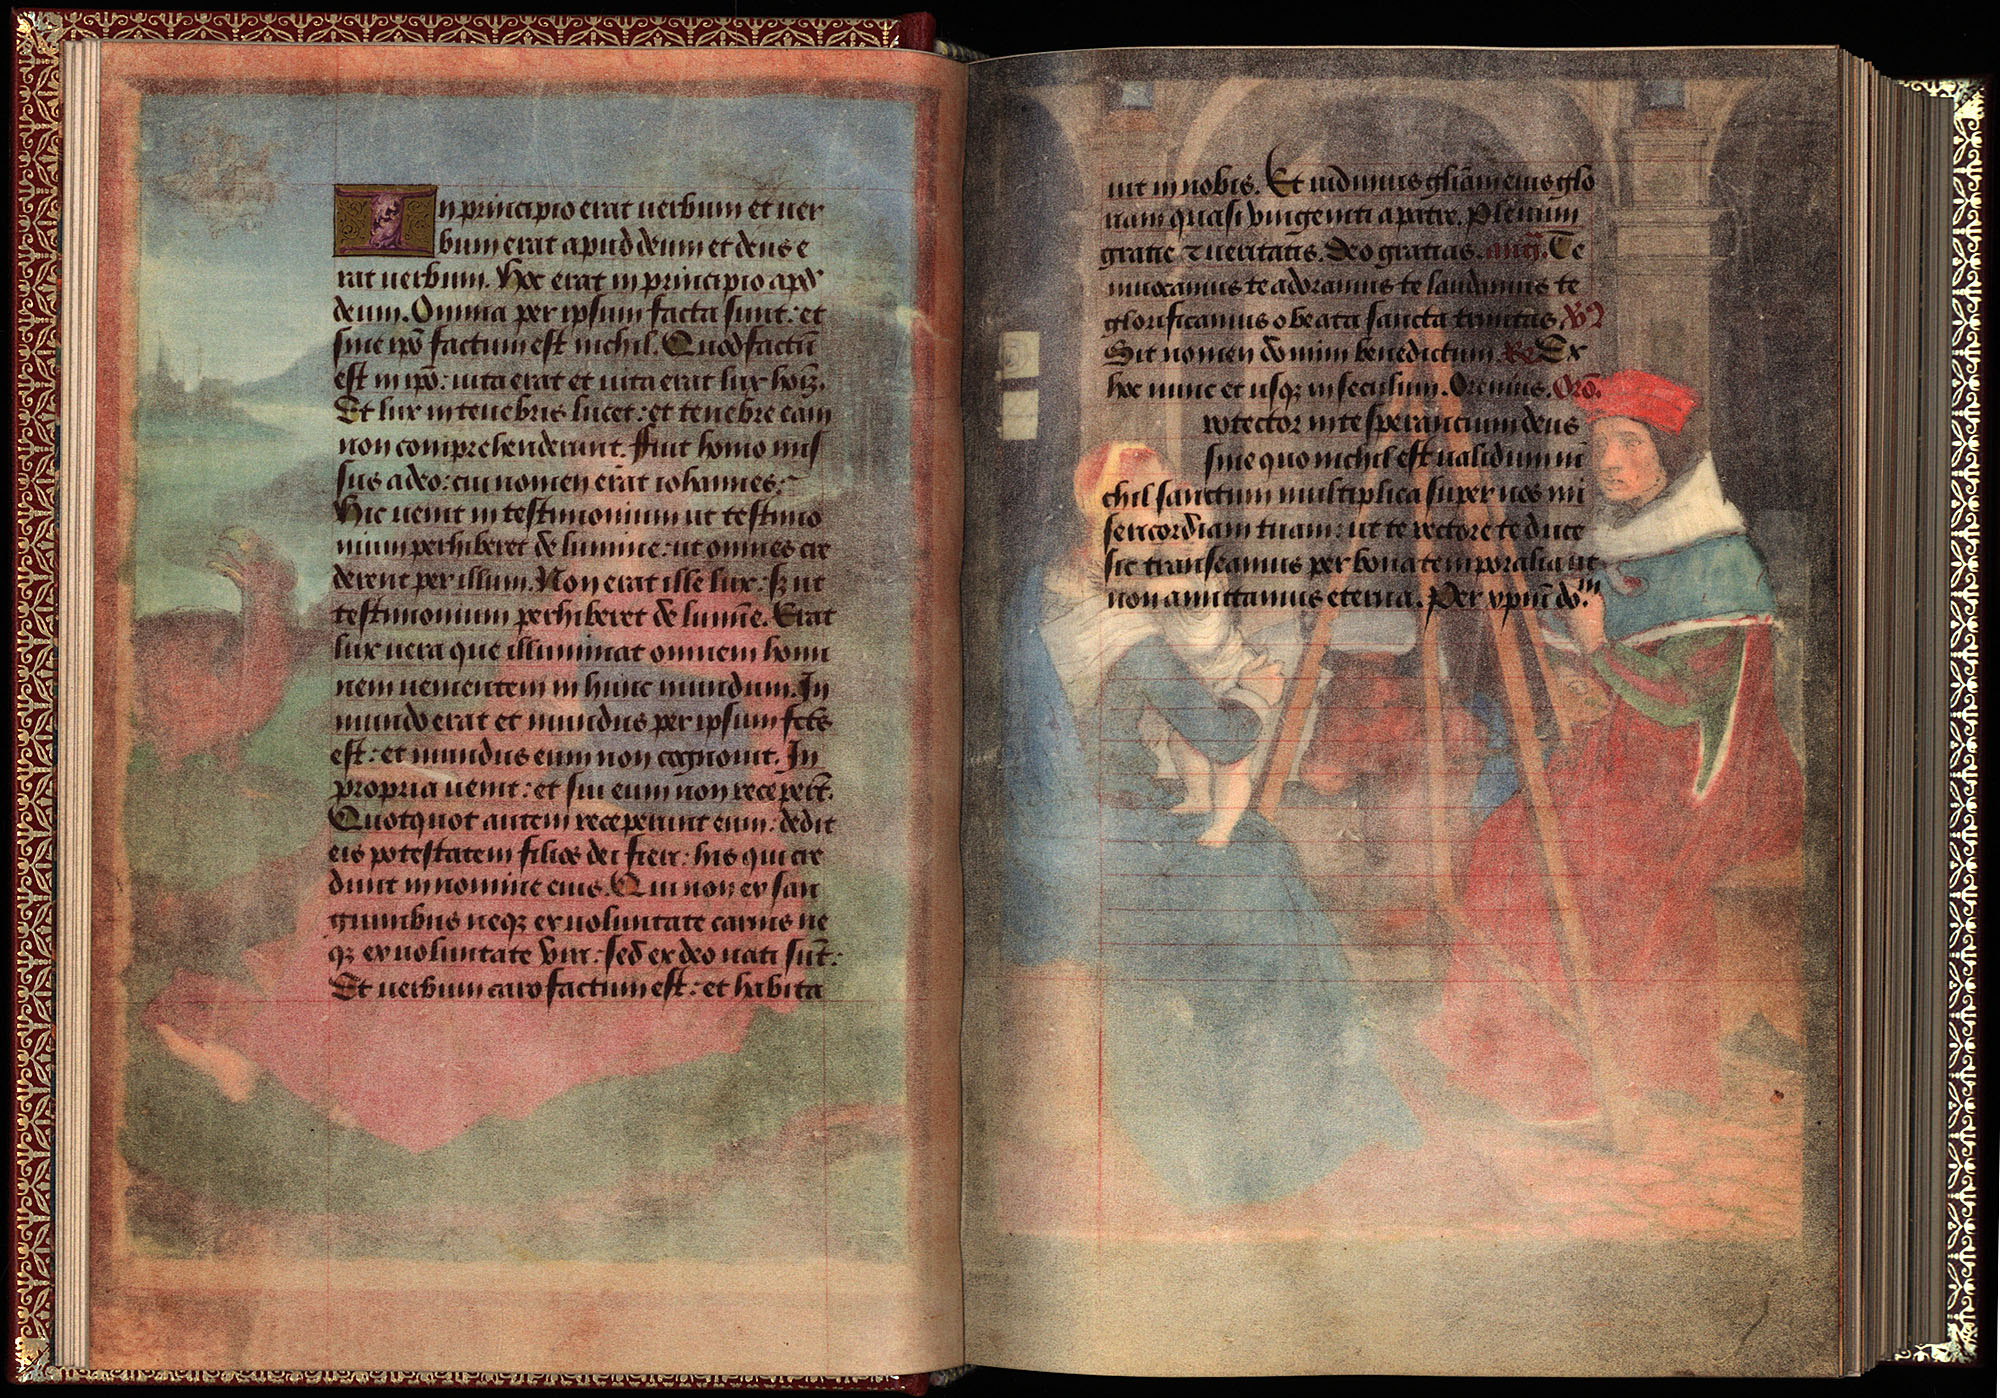 In principio erat uerbum et uer
bum erat apud deum et deus e
rat uerbum. Hoc erat in principio apd̕
deum. Omnia per ipsum facta sunt: et
sine ipō factum est nichil. Quod factū
est in ipō: uita erat et uita erat lux hoīꝫ.
Et lux in tenebris lucet: et tenebre eam
non comprehenderunt. Fuit homo mis
sus a deo: cui nomen erat iohannes:
Hic uenit in testimonium ut testimo
nium perhiberet de lumine: ut omnes cre
derent per illum. Non erat ille lux: sꝫ ut
testimonium perhiberet de lumīe. Erat
lux uera que illuminat omnem homi
nem uenientem in hunc mundum. In
mundo erat et mundus per ipsum fcūs
est: et mundus eum non cognouit. In
propria uenit: et sui eum non receperūt.
Quotquot autem receperunt eum: dedit
eis potestatem filios dei fieri: his qui cre
dunt in nomine eius. Qui non ex san
guinibus neqꝫ ex uoluntate carnis ne
qꝫ ex uoluntate viri: sed ex deo nati sūt:
Et uerbum caro factum est: et habita
uit in nobis. Et uidimus gl̄iam eius glo
riam quasi vnigeniti a patre. Plenum
gratie ⁊ ueritatis. Deo gratias. Te
inuocamus te adoramus te laudamus te
glorificamus o beata sancta trinitas.
Sit nomen domini benedictum. Re Ex
hoc nunc et usqꝫ in seculum. Oremus. Orō.
rotector in te sperancium deus
sine quo nichil est ualidum ni
chil sanctum multiplica super nos mi
sericordiam tuam: ut te rectore te duce
sic transeamus per bona temporalia ut
non amittamus eterna. Per xpm̄ dō.